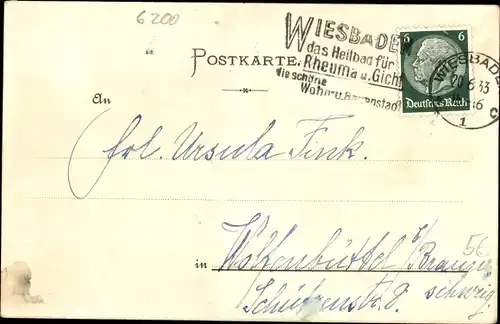 6200
WIESBADEN
das Heilbad für
Rheuma u. Gicht
die schöne
Wohn- u. Bäderstadt
6 6
Deutsches Reich
WIESBADEN
20.6.33
1 c
POSTKARTE.
An
Frl. Ursula Fink.
in Wolfenbüttel b/
Braun-
schweig.
Schützenstr. 8.
5€